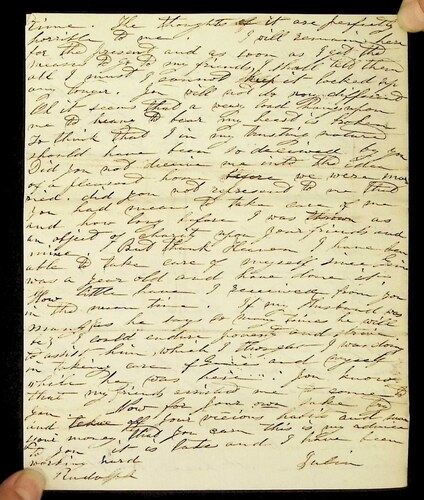 time. The thoughts of it are perfectly
horrible to me. I will remain here
for the present and as soon as I get the
means to go to my friends, I shall tell them
all I must I cannot keep it locked up
any longer. You will act so indifferent
all it seems that a very load Ruins upon
me to means to bear my heart is broken
to think that I in my trusting nature
should have been so deceived by you
Did you not deceive me into the idea
of a pleasant home before we were mar
ried, did you not represent to me that
you had means to take care of me
and how long before I was thrown as
an object of charity upon your friends and
mine. But thank Heaven I have been
able to take care of myself since Genie
was a year old and have done it.
How little have I received from you
in the mean time. If my husband was
man as he says so many times he will
be, I could endure poverty and strive
to assist him, which I thought I was doing
in taking care of Genie and myself
while he was his You know
that my friends assisted me to come to
you. Now for your own sake try
and leave off your vicious habits and save
your money that you earn this is my advice
to you it is late and I have been
working hard
Rudolph Julia